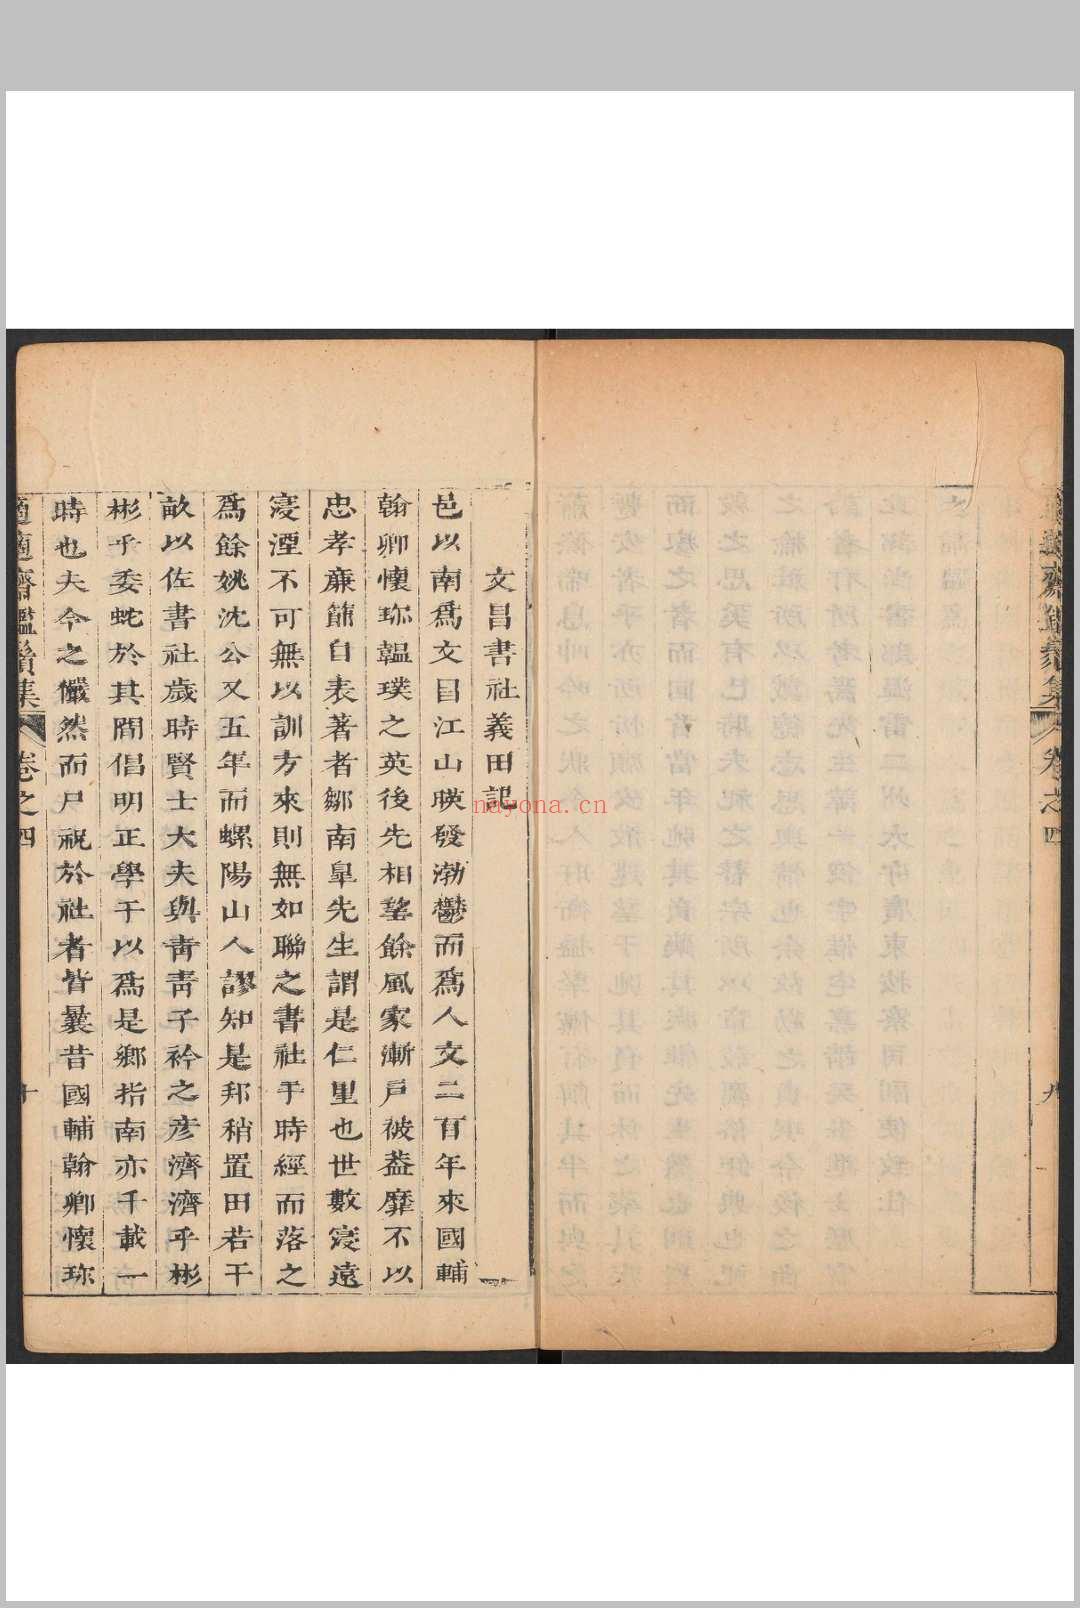 文昌書社義田記
邑以南爲文目江山暎發渤鬱而爲人文二百年來國輔
翰卿懷珎韞璞之英後先相望餘風家漸戶被葢靡不以
忠孝亷節自表著者鄒南臯先生謂是仁里也世數寖遠
寖湮不可無以訓方來則無如聯之書社于時經而落之
爲餘姚沈公又五年而螺陽山人謬知是邦稍置田若干
畝以佐書社歲時賢士大夫與靑靑子衿之彦濟濟乎彬
彬乎委蛇於其間倡明正學于以爲是鄉指南亦千載一
時也夫今之儼然而尸祝於社者皆曩昔國輔翰卿懷珎
適適齋鑑鬚集 卷之四 十
卷之四 九
nayona.cn